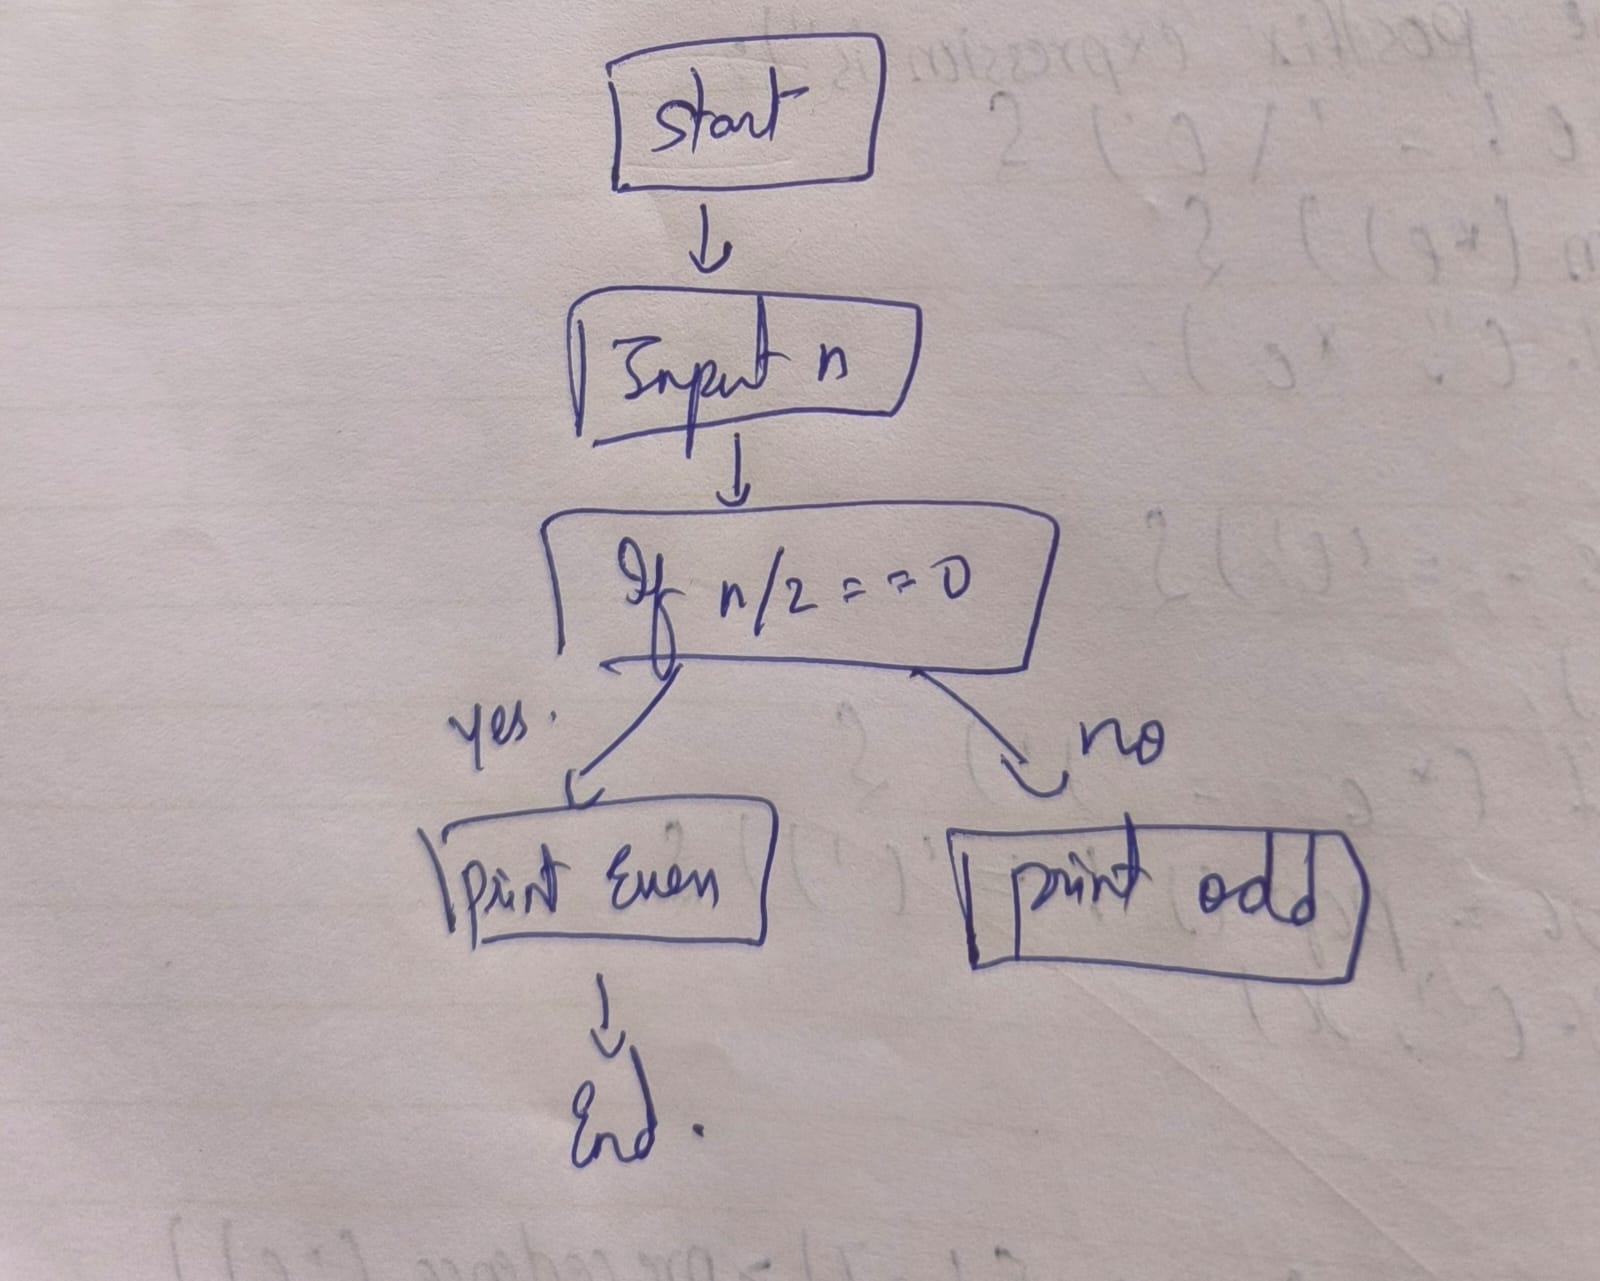 start
Input n
If n/2 = = 0
yes.
no
print Even
print odd
End.